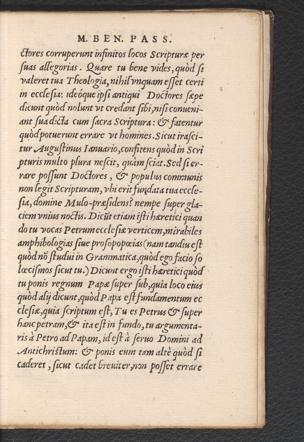 M. BEN. PASS.
ctores corruperunt infinitos locos Scripturæ per
suas allegorias. Quare tu bene vides, quòd si
valeret tua Theologia, nihil vnquam esset certi
in ecclesia: ideóque ipsi antiqui Doctores sæpe
dicunt quòd nolunt vt credant sibi, nisi conueni-
ant sua dicta cum sacra Scriptura: & fatentur
quòd potuerunt errare vt homines. Sicut irasci-
tur Augustinus Ianuario, confitens quòd in Scri
pturis multo plura nescit, quàm sciat. Sed si er-
rare possunt Doctores, & populus communis
non legit Scripturam, vbi erit fundata tua eccle-
sia, domine Mulo-præsidens? nempe super gla-
ciem vnius noctis. Dicūt etiam isti hæretici quan
do tu vocas Petrum ecclesiæ verticem, mirabiles
amphibologias siue prosopopœias (nam tandiu est
quòd nō studui in Grammatica, quòd ego facio so
lœcismos sicut tu.) Dicunt ergo isti hæretici quòd
tu ponis regnum Papæ super sub, quia loco eius
quòd alij dicunt, quòd Papa est fundamentum ec
clesiæ, quia scriptum est, Tu es Petrus & super
hanc petram, & ita est in fundo, tu argumenta-
ris à Petro ad Papam, id est à seruo Domini ad
Antichristum: & ponis eum tam altè quòd si
caderet, sicut cadet breuiter, non posset errare